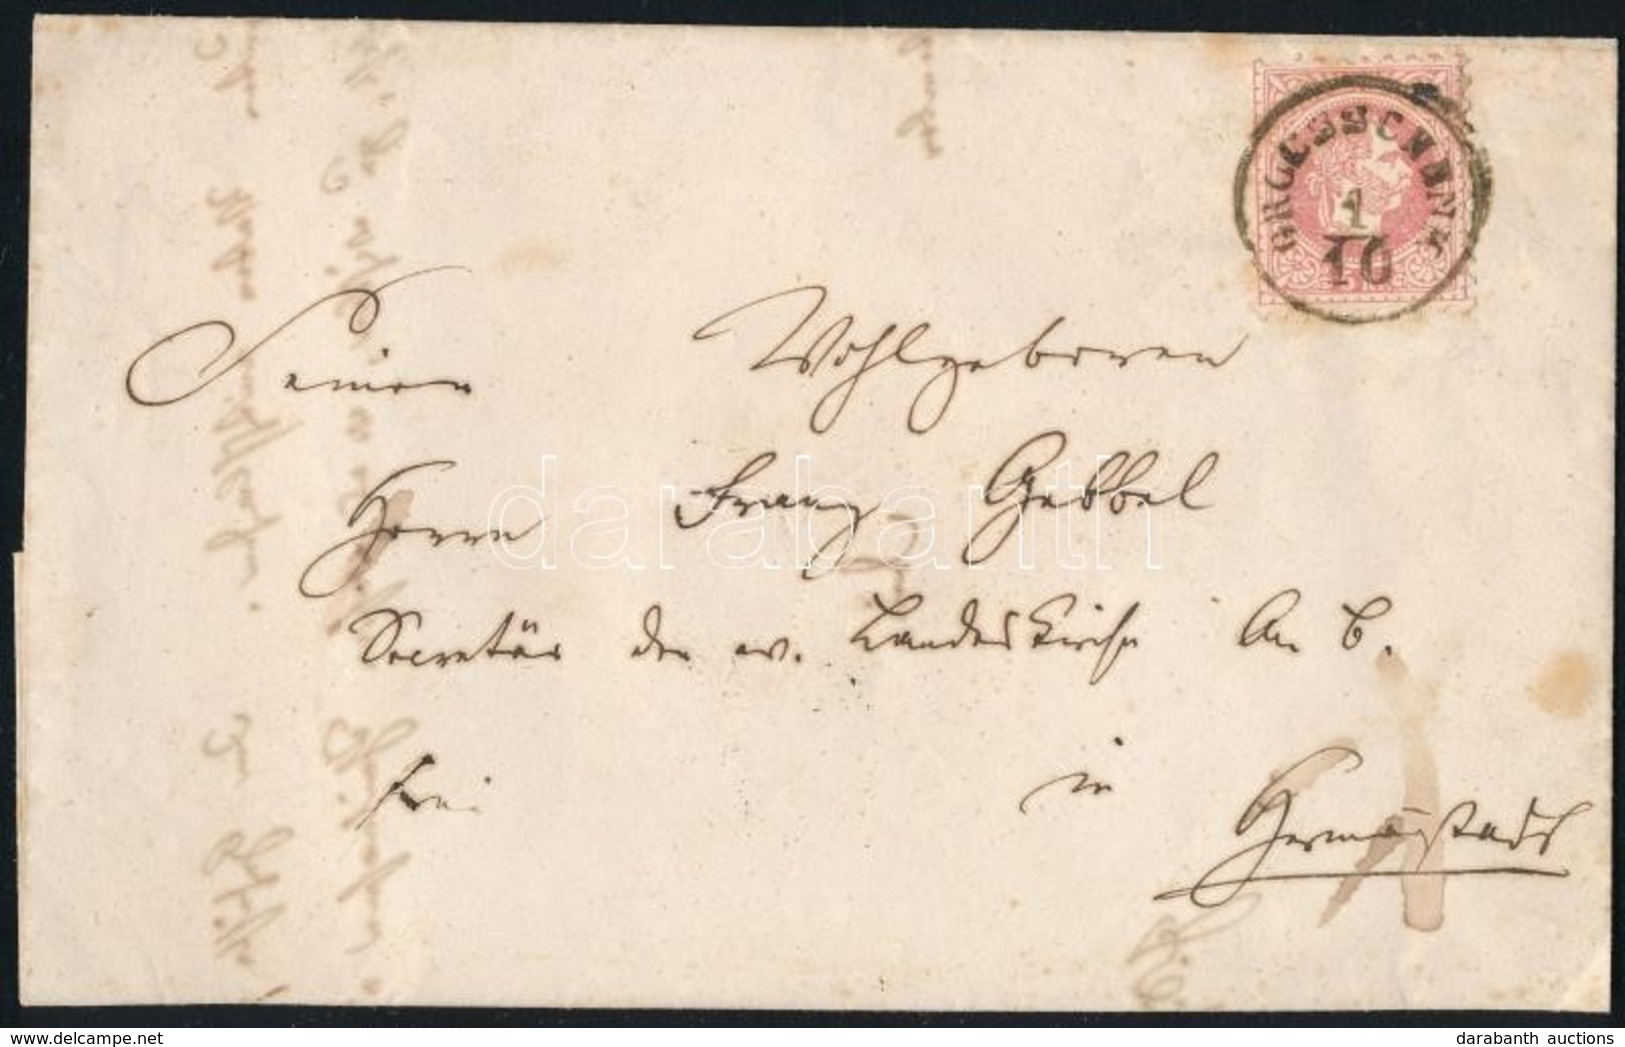 GROSSSCHENK
1
10
Seiner Wohlgeboren
Herrn Franz Gebbel
Secretär der ev. Landeskirche A. B.
frei
in
Hermannstadt
darabanth
www.delcampe.net
darabanth auctions